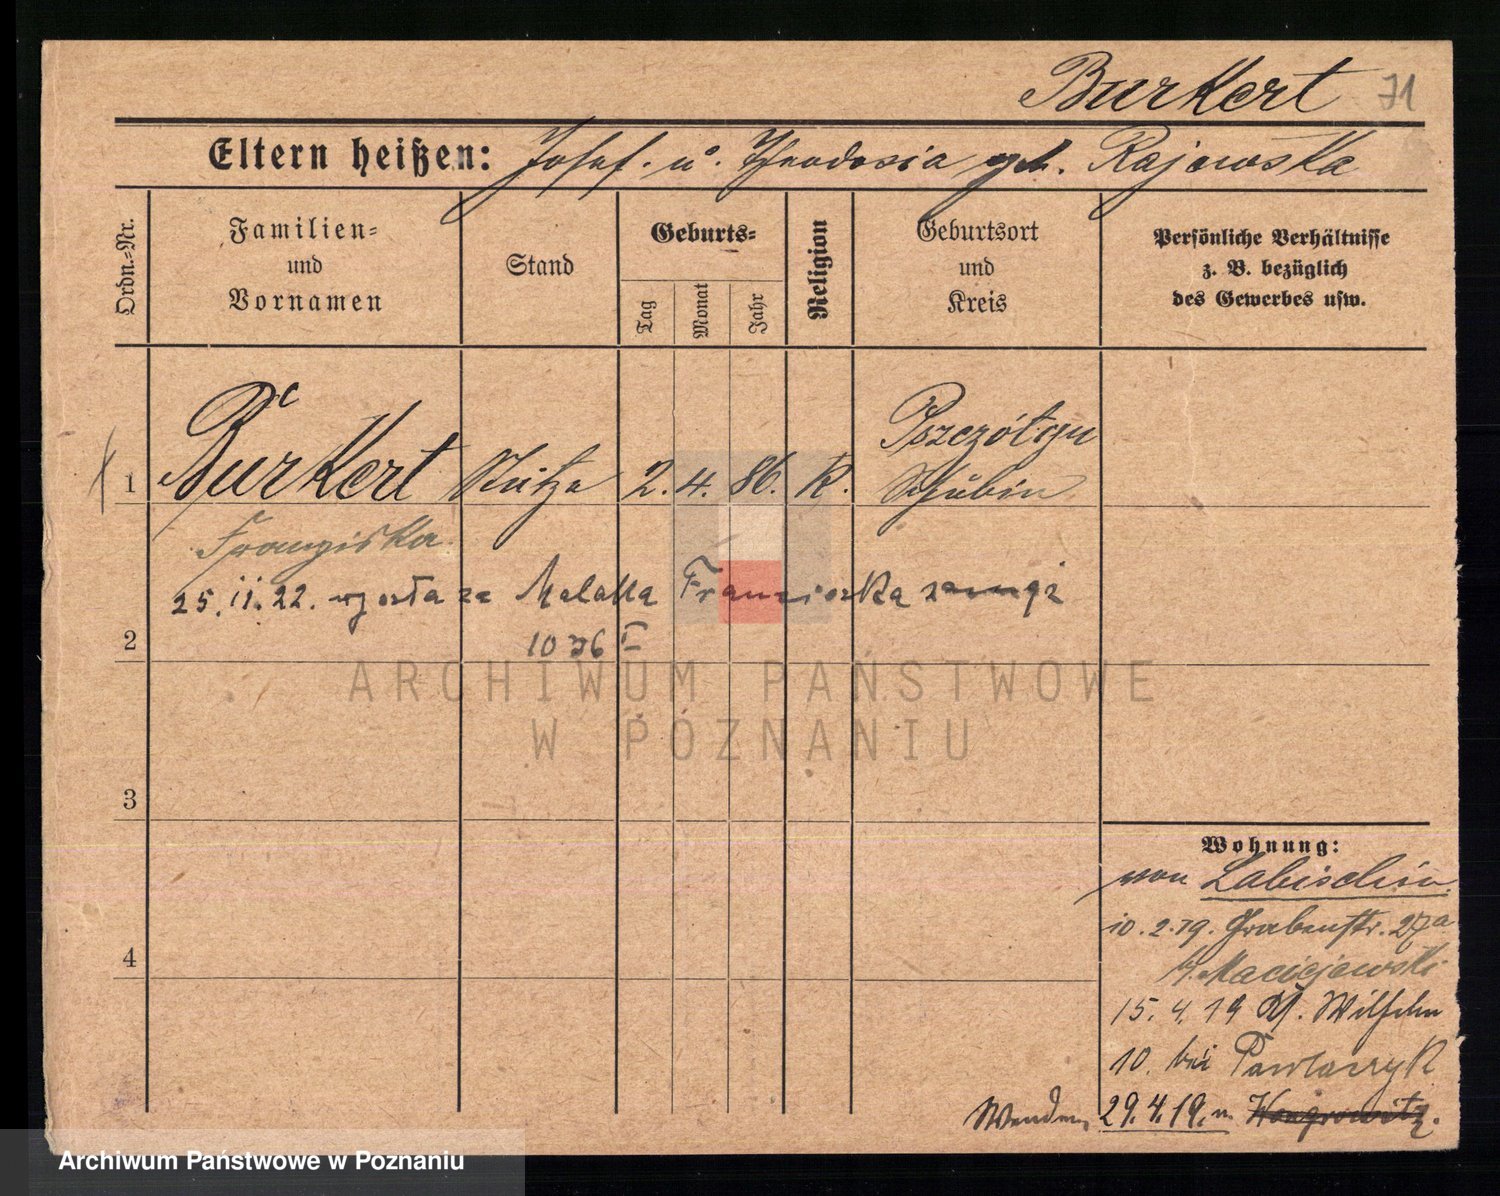 Burkert 71
Eltern heißen: Josef u. Theodosia geb. Rajewska
Ordn.-Nr.
Familien-
und
Vornamen
Stand
Geburts-
Tag
Monat
Jahr
Religion
Geburtsort
und
Kreis
Persönliche Verhältnisse
z. B. bezüglich
des Gewerbes usw.
Pszczółczyn
1 Burkert Stütze 2. 4. 86. K. Schubin
Franziska
25.11.22. wyszła za Malakka Franciszka za mąż
2
ARCHIWUM PAŃSTWOWE
W POZNANIU
3
Wohnung:
von Labischin
10.2.19. Grabenstr. 27a
b. Maciejewski
4
15.4.19 Wilhelm
10. bei Pawlaczyk
Wenden, 29.4.19. n. Wongrowitz.
Archiwum Państwowe w Poznaniu